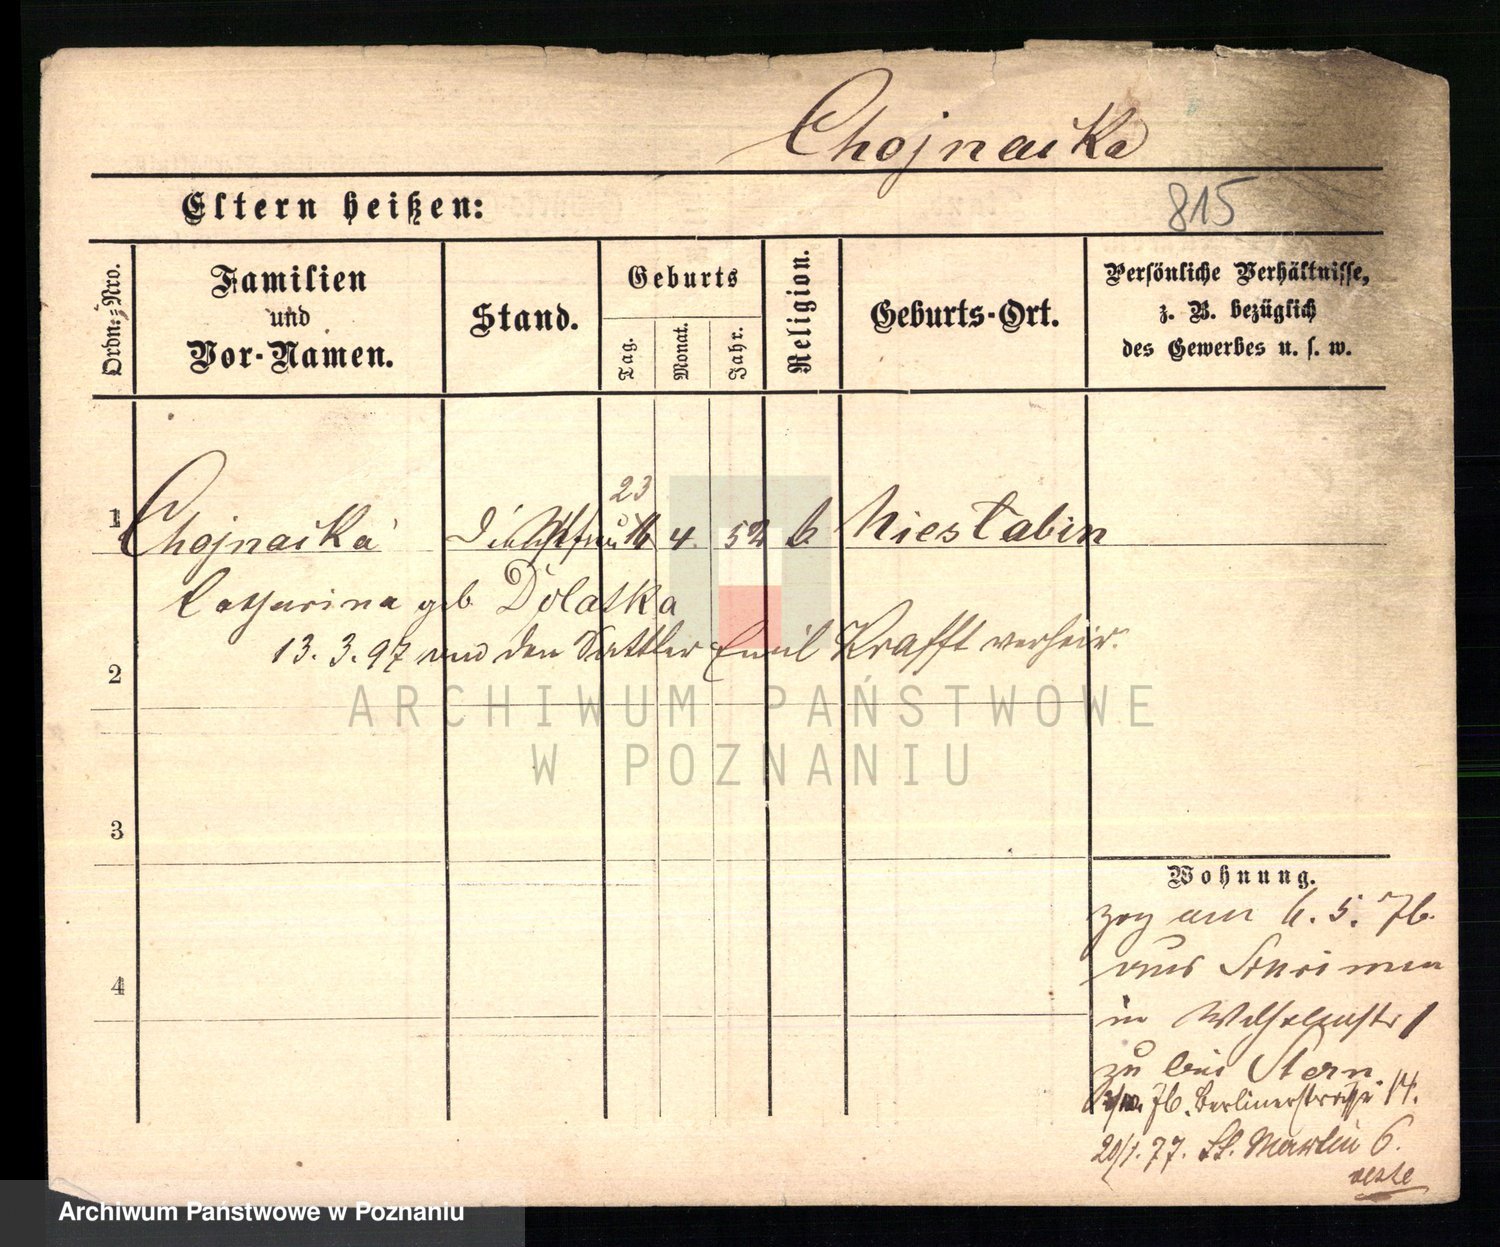 Chojnacka
Eltern heißen:
815
Ordn.-Nro.
Familien
und
Vor-Namen.
Stand.
Geburts
Tag.
Monat.
Jahr.
Religion.
Geburts-Ort.
Persönliche Verhältnisse,
z. B. bezüglich
des Gewerbes u. s. w.
23
1 Chojnacka 4. 52 k. Niestabin
Catharina geb Dolatka
13.3.97 mit den Sattler Emil Krafft verheir.
2
ARCHIWUM PAŃSTWOWE
W POZNANIU
3
Wohnung.
zog am 6. 5. 76.
aus Schrimm
4
in Wilhelmstr 1
zu bei Stern.
76. Berlinerstraße 14.
20/1. 77. St. Martin 6.
Archiwum Państwowe w Poznaniu